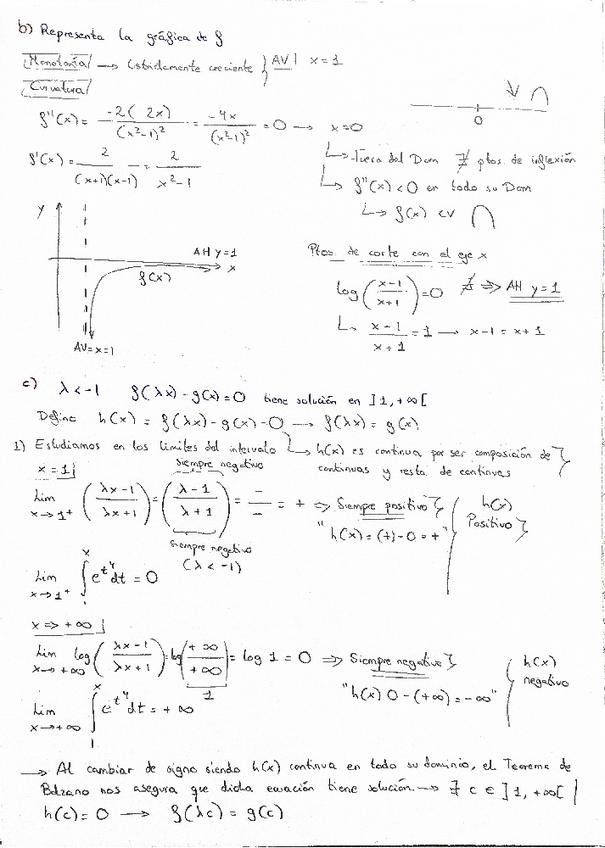 b) Representa la gráfica de f
Monotonía → Estrictamente creciente } AV | x = 1
Curvatura
f''(x) = -2(2x)/(x²-1)² = -4x/(x²-1)² = 0 → x=0
0
f'(x) = 2/((x+1)(x-1)) = 2/(x²-1)
↳ Fuera del Dom ∄ ptos de inflexión
↳ f''(x) < 0 en todo su Dom
↳ f(x) cv ∩
y
AH y=1
x
f(x)
AV=x=1
Ptos de corte con el eje x
log((x-1)/(x+1)) = 0 ∄ ⇒ AH y=1
↳ (x-1)/(x+1) = 1 → x-1 = x+1
c) λ<-1 f(λx)-g(x)=0 tiene solución en ]1,+∞[
Define h(x) = f(λx)-g(x)-0 → f(λx) = g(x)
1) Estudiamos en los límites del intervalo
↳ h(x) es continua por ser composición de
continuas y resta de continuas }
x = 1 |
siempre negativo
Lim x→1⁺ ((λx-1)/(λx+1)) = ((λ-1)/(λ+1)) = -/- = + ⇒ Siempre positivo }
"h(x) = (+)-0 = +"
h(x)
Positivo }
siempre negativo
(λ<-1)
Lim x→1⁺ ∫ₓ e^t⁴ dt = 0
x ⇒ +∞ |
Lim x→+∞ log((λx-1)/(λx+1)) = log(+∞/+∞) = log 1 = 0 ⇒ Siempre negativo }
1
"h(x) 0-(+∞) = -∞"
h(x)
negativo
Lim x→+∞ ∫₁ˣ e^t⁴ dt = +∞
→ Al cambiar de signo siendo h(x) continua en todo su dominio, el Teorema de
Bolzano nos asegura que dicha ecuación tiene solución. → ∃ c ∈ ]1,+∞[ |
h(c) = 0 → f(λc) = g(c)